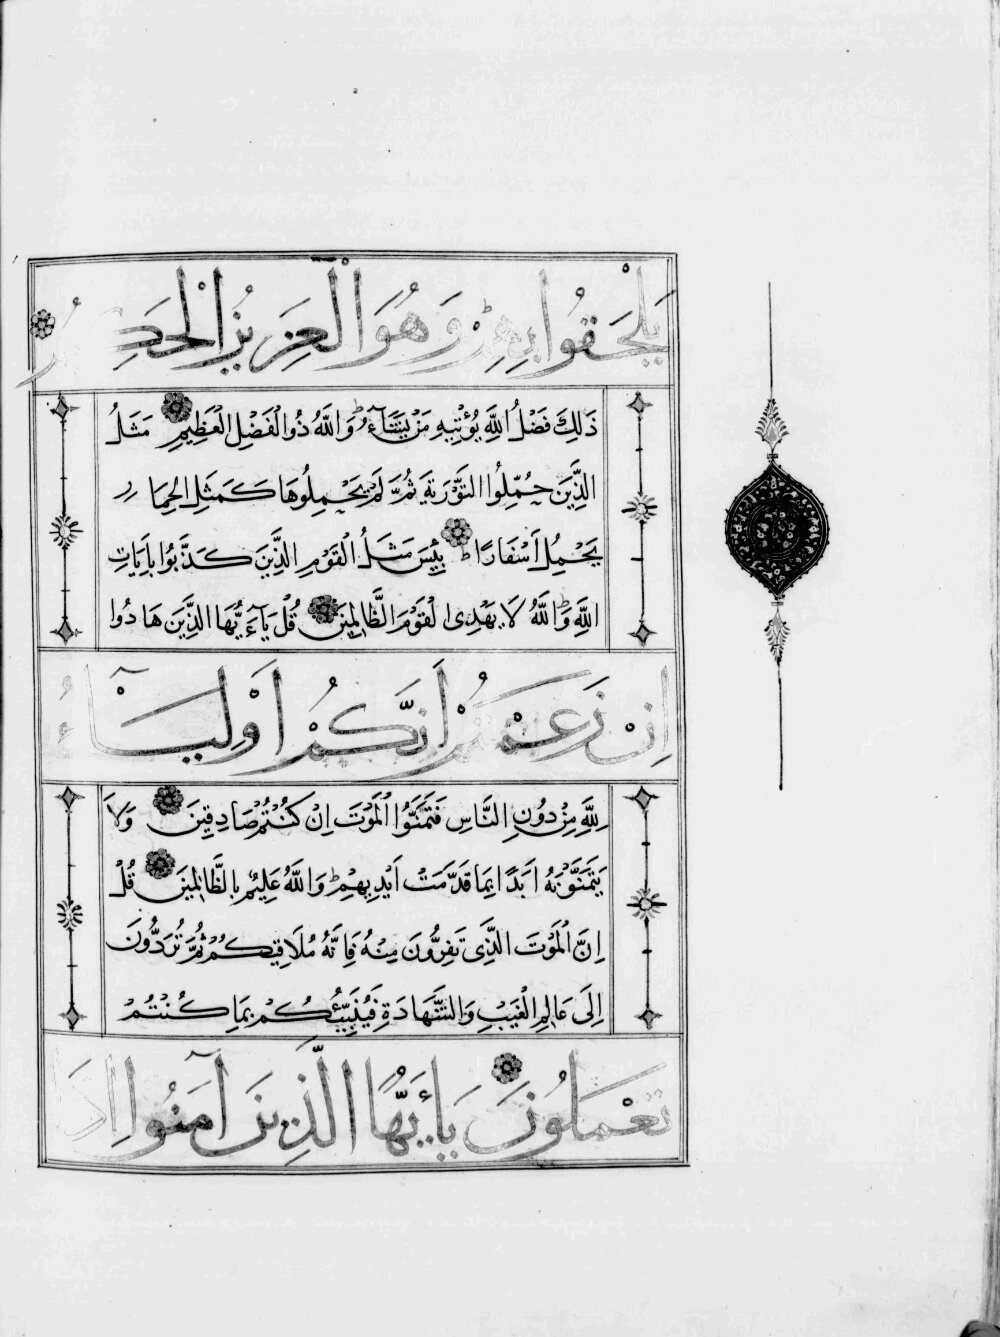 يَلْحَقُوا بِهِمْ وَهُوَ الْعَزِيزُ الْحَكِيمُ
ذَلِكَ فَضْلُ اللَّهِ يُؤْتِيهِ مَنْ يَشَآءُ وَاللَّهُ ذُو الْفَضْلِ الْعَظِيمِ مَثَلُ
الَّذِينَ حُمِّلُوا التَّوْرَيةَ ثُمَّ لَمْ يَحْمِلُوهَا كَمَثَلِ الْحِمَارِ
يَحْمِلُ أَسْفَارًا بِئْسَ مَثَلُ الْقَوْمِ الَّذِينَ كَذَّبُوا بِآيَاتِ
اللَّهِ وَاللَّهُ لَا يَهْدِى الْقَوْمَ الظَّالِمِينَ قُلْ يَآءَيُّهَا الَّذِينَ هَادُوا
اِنْ زَعَمْتُمْ اَنَّكُمْ اَوْلِيَآءُ
لِلَّهِ مِنْ دُونِ النَّاسِ فَتَمَنَّوُا الْمَوْتَ اِنْ كُنْتُمْ صَادِقِينَ وَلَا
يَتَمَنَّوْنَهُ اَبَدًا بِمَا قَدَّمَتْ اَيْدِيهِمْ وَاللَّهُ عَلِيمٌ بِالظَّالِمِينَ قُلْ
اِنَّ الْمَوْتَ الَّذِى تَفِرُّونَ مِنْهُ فَاِنَّهُ مُلَاقِيكُمْ ثُمَّ تُرَدُّونَ
اِلَى عَالِمِ الْغَيْبِ وَالشَّهَادَةِ فَيُنَبِّئُكُمْ بِمَا كُنْتُمْ
تَعْمَلُونَ يَاءَيُّهَا الَّذِينَ آمَنُوا اِذَا